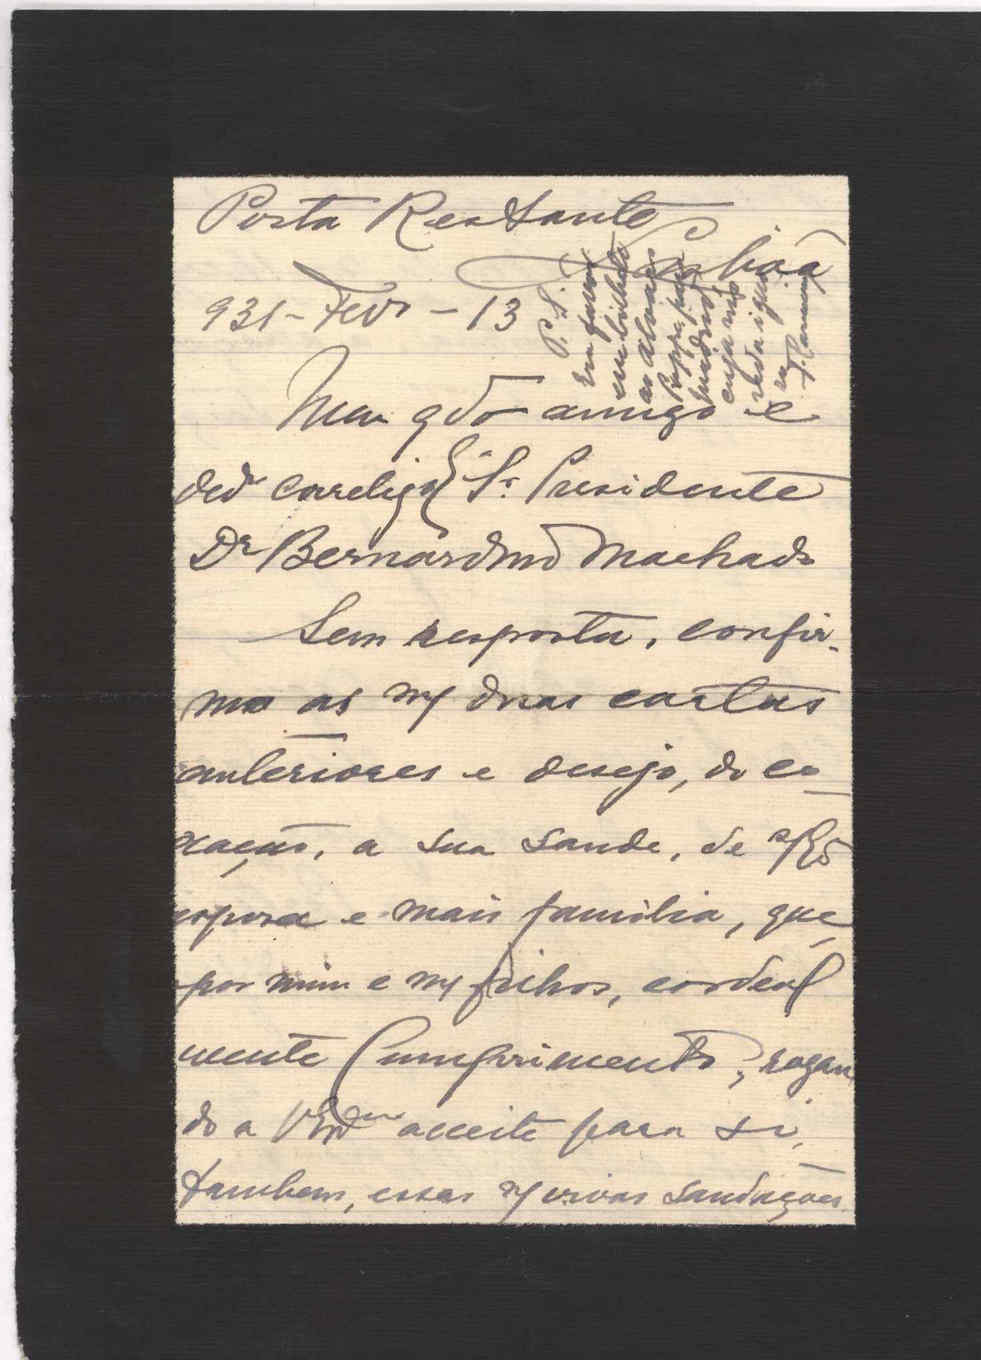 Posta Restante
Lisboa
931 - Fevº - 13
P. S.
Meu qdº amigo e
dedº corelig.º Sr. Presidente
Dr Bernardino Machado
Sem resposta, confir-
mo as m/ duas cartas
anteriores e desejo, do co-
ração, a sua saude, de s/ Exª
esposa e mais familia, que
por mim e m/ filhos, cordeal
mente cumprimento, rogan
do a V Exª aceite para si,
tambem, essas m/ vivas saudações.